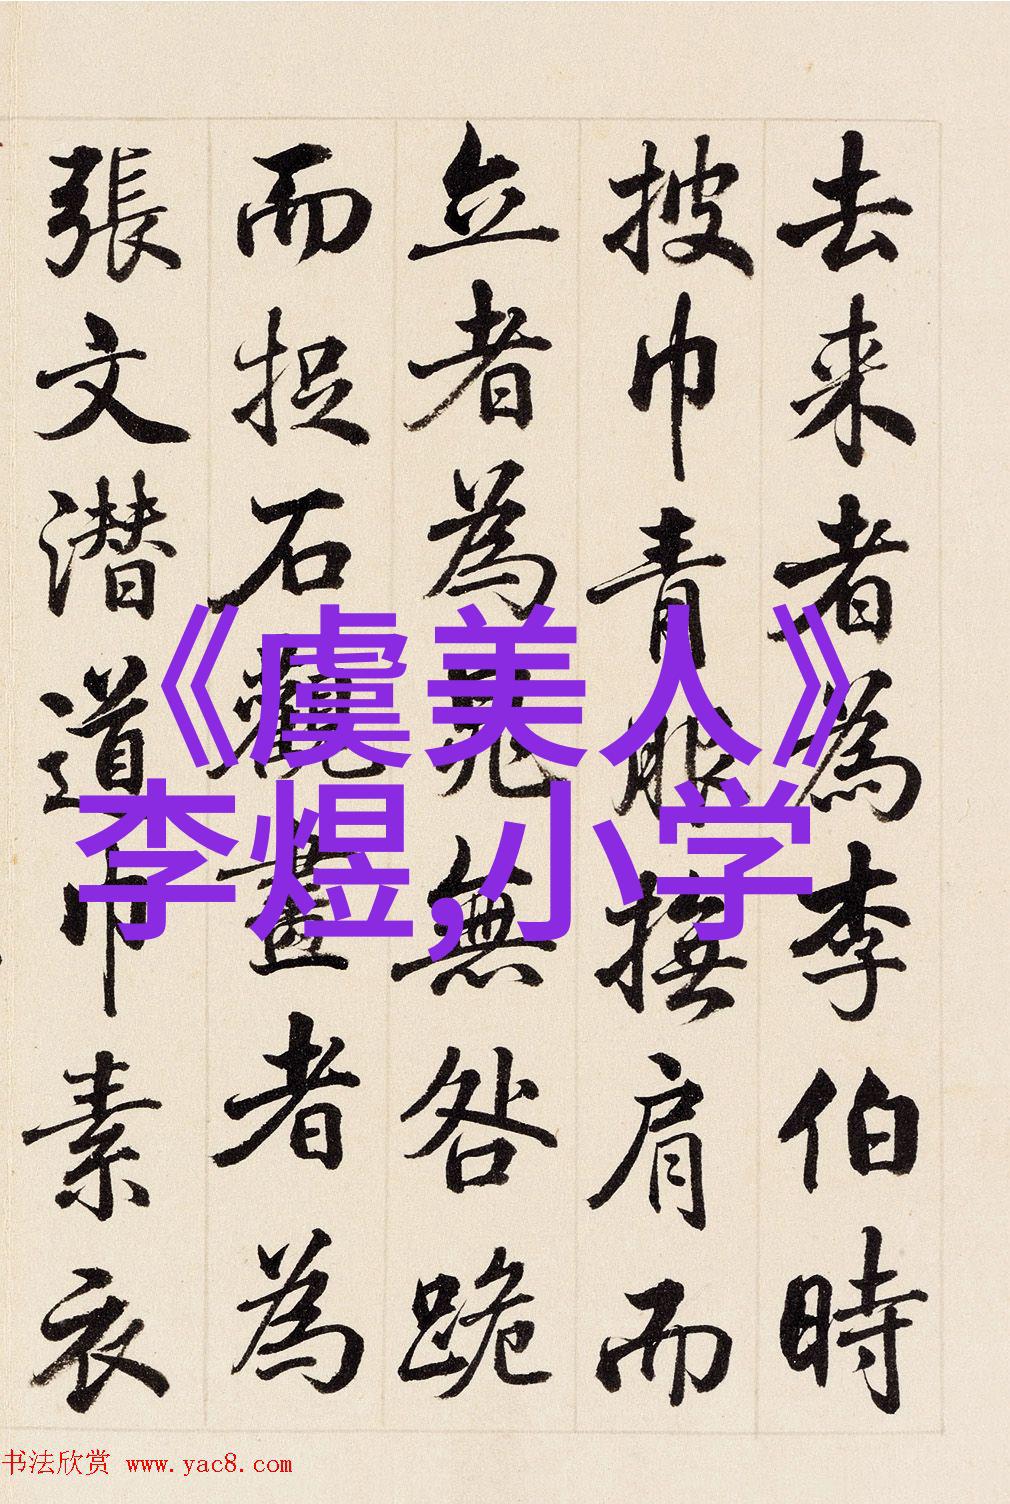 去来者為李伯時
披巾青服撫肩而
立者為晁無咎跪
而捉石觀畫者為
張文潛道巾素衣
《虞美人》
李煜,小学
书法欣赏 www.yac8.com